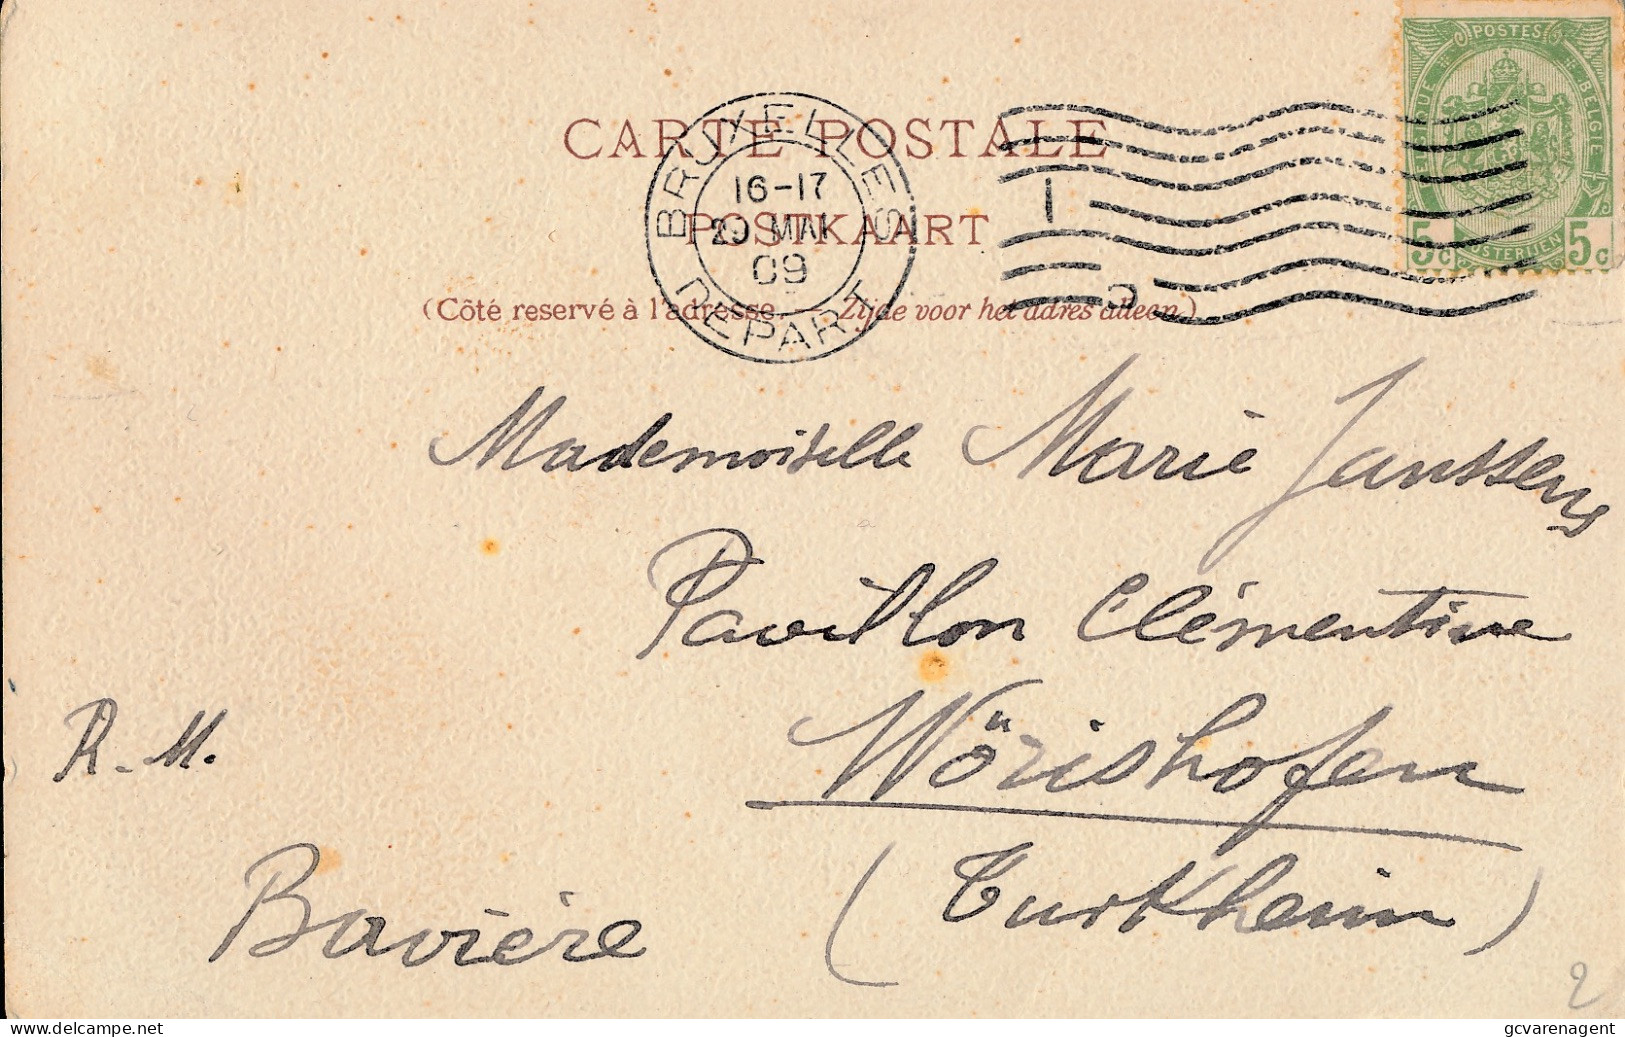 POSTES
BELGIQUE BELGIE
5c POSTERIJEN 5c
CARTE POSTALE
POSTKAART
(Côté reservé à l'adresse. — Zijde voor het adres alleen.)
BRUXELLES
16-17
MAI
09
DEPART
1
Mademoiselle Marie Janssens
Pavillon Clémentine
Wörishofen
R. M.
(Turkheim)
Bavière
2
delcampe.net
gcvarenagent